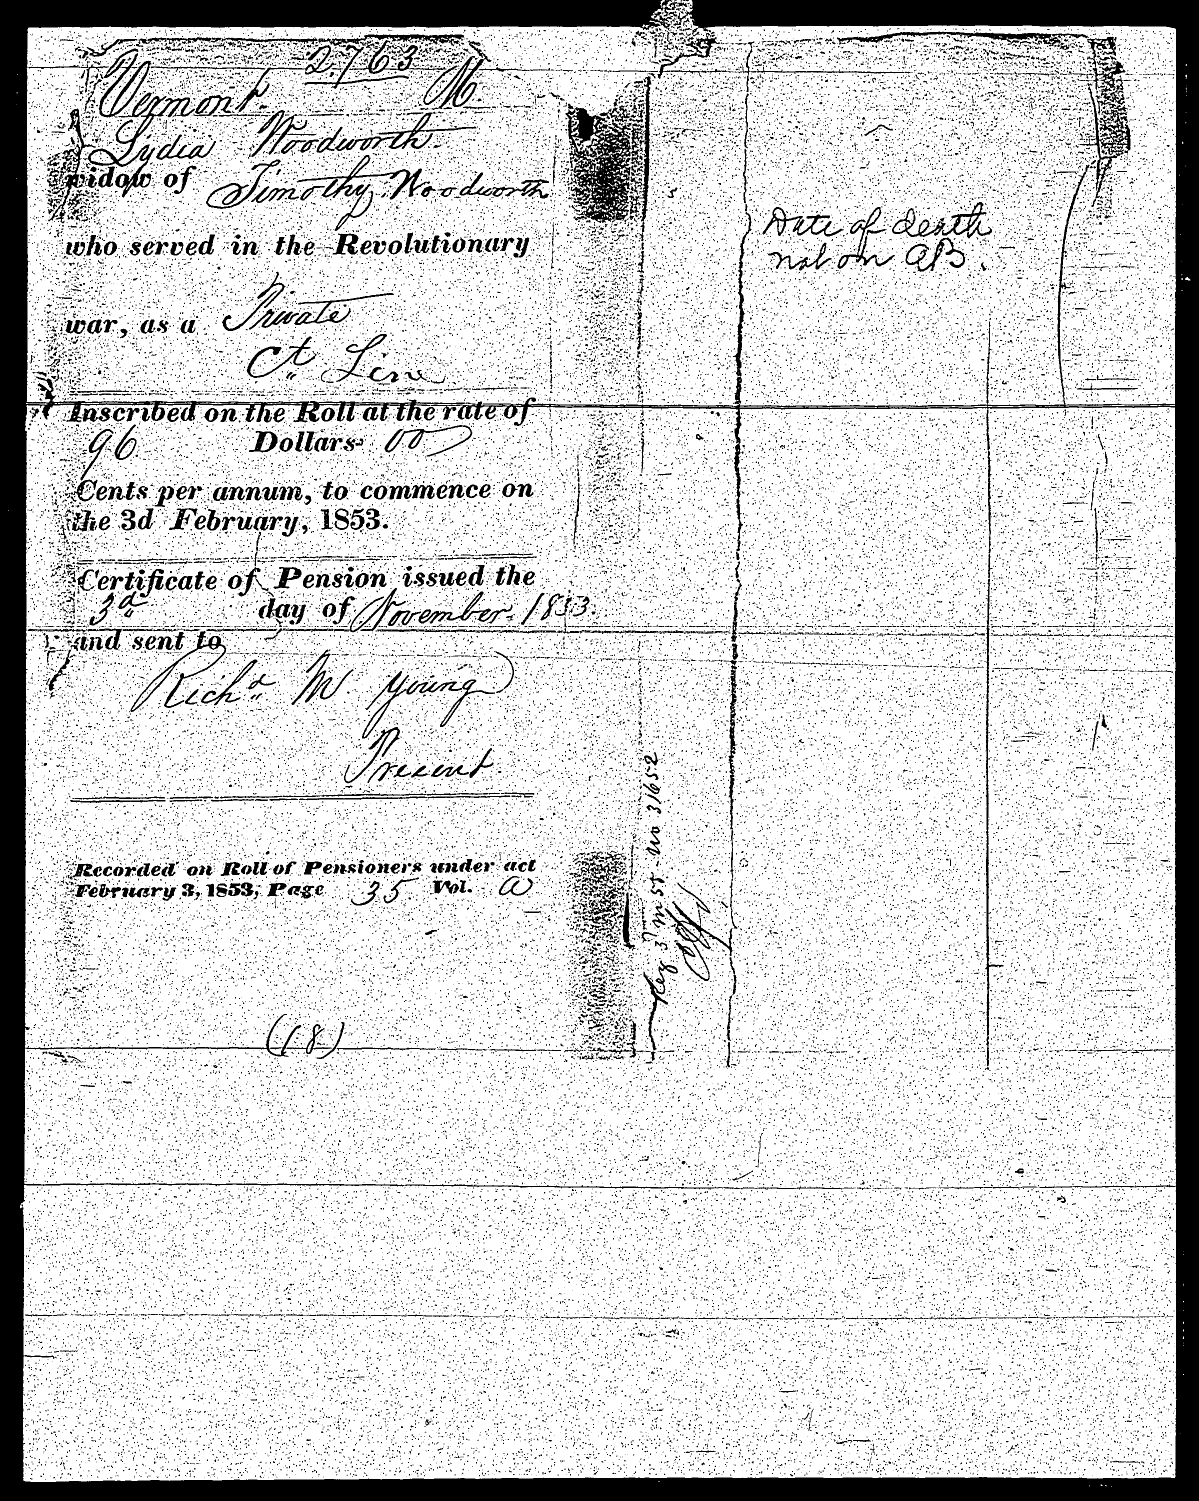 2.763
Vermont. M.
Lydia Woodworth.
widow of Timothy Woodworth
who served in the Revolutionary
war, as a Private
Ct. Line
Inscribed on the Roll at the rate of
96 Dollars 00
Cents per annum, to commence on
the 3d February, 1853.
Certificate of Pension issued the
3d day of November. 1853.
and sent to
Richd. M Young
Present.
Recorded on Roll of Pensioners under act
February 3, 1853, Page 35 Vol. A
(18)
no 31652
Date of death
not on